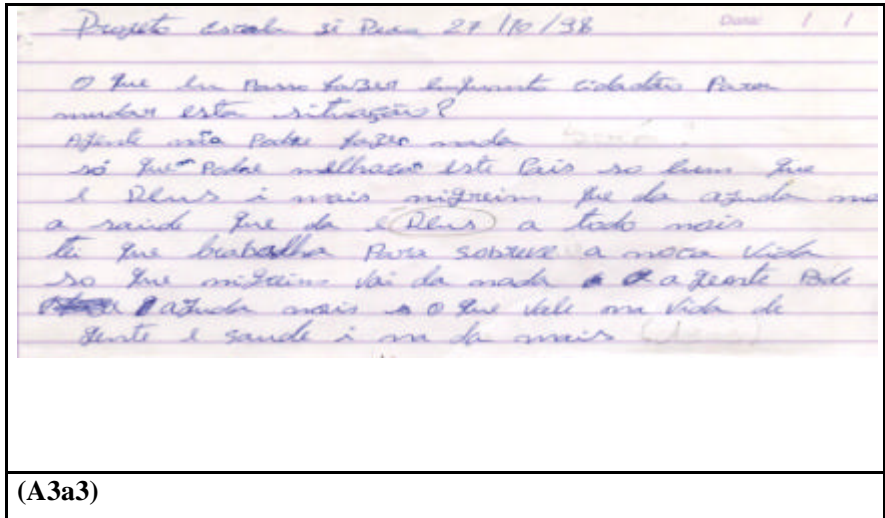 Projeto escola 27/10/98 Data: / /
O que eu posso fazer enquanto cidadão Para
mudar esta situação?
Agente não Podre fazer nada
só que Podre melhorar este Pais so hum que
e Deus i mais nigreim que da ajuda
a saude que da e Deus a todo mais
tei que trabalha Para sobreve a noca vida
so que nigreim vai da nada a geente Pode
ajuda mais o que vale na vida de
gente e saude i na da mais
(A3a3)